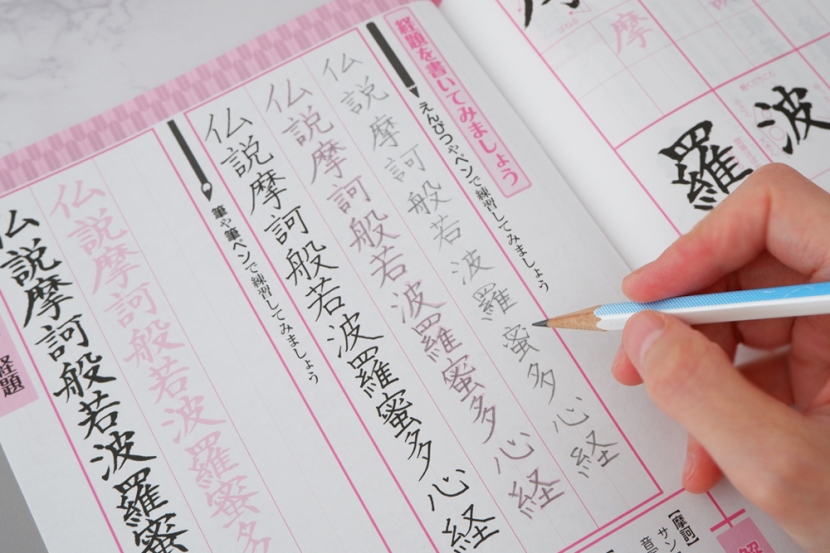 摩
波
羅
経題を書いてみましょう
えんぴつやペンで練習してみましょう
仏説摩訶般若波羅蜜多心経
仏説摩訶般若波羅蜜多心経
仏説摩訶般若波羅蜜多心経
筆や筆ペンで練習してみましょう
仏説摩訶般若波羅蜜多
仏説摩訶般若波羅蜜
経題
【摩訶】
サン
音